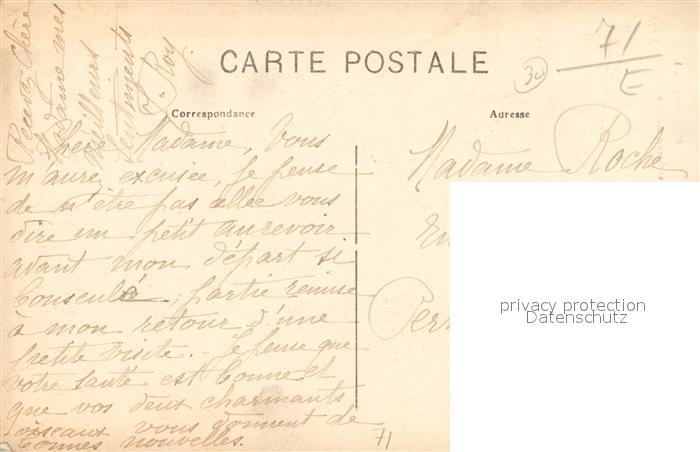 Recevez Chère
Madame mes
meilleurs
sentiments
Roy
CARTE POSTALE
30
71
E
Correspondance
Adresse
Chère Madame, Vous
m'aurez excusée, je pense
de n'être pas allée vous
dire un petit aurevoir
avant mon départ si
partie remise
à mon retour d'une
petite visite. - Je pense que
votre santé est bonne et
que vos deux charmants
oiseaux vous donnent de
bonnes nouvelles.
71
Madame Roche
En
Perr
privacy protection
Datenschutz